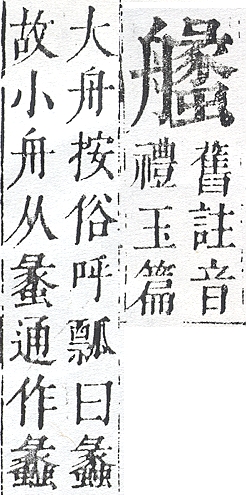 舊註音
禮玉篇
大舟按俗呼瓢曰蠡
故小舟从通作蠡